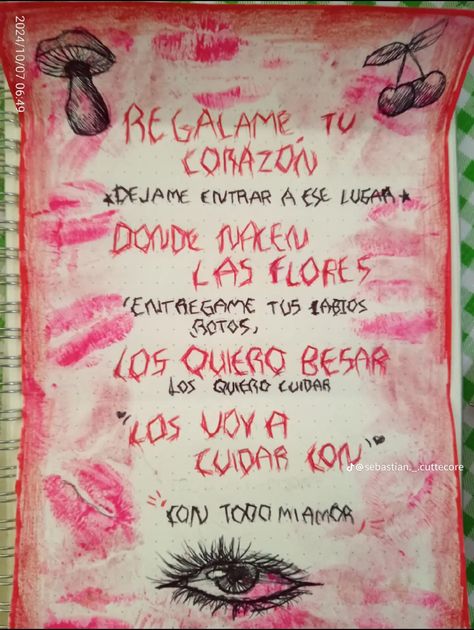 2024/10/07 06:49
REGÁLAME TU
CORAZÓN
★DEJAME ENTRAR A ESE LUGAR★
DONDE NACEN
LAS FLORES
"ENTREGAME TUS LABIOS
ROTOS,
LOS QUIERO BESAR
LOS QUIERO CUIDAR
"LOS VOY A
CUIDAR CON"
@sebastian._.cuttecore
"CON TODO MI AMOR"